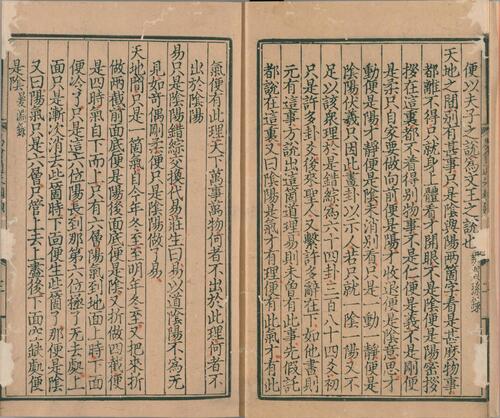 便以夫子之說為文王之說也
天地之間別有甚事只是陰與陽兩箇字看是甚麼物事
都離不得只就身上體看才開眼不是陰便是陽密拶
拶在這裏都不着得別物事不是仁便是義不是剛便
是柔只自家要做向前便是陽才收退便是陰意思才
動便是陽才靜便是陰未消別看只是一動一靜便是
陰陽伏羲只因此畫卦以示人若只就一陰一陽又不
足以該衆理於是錯綜為六十四卦三百八十四爻初
只是許多卦爻後來聖人又繫許多辭在下如他書則
元有這事方說出這箇道理易則未曾有此事先假託
都說在這裏又曰陰陽是氣才有理便有此氣才有此
氣便有此理天下萬事萬物何者不出於此理何者不
出於陰陽
易只是陰陽錯綜交換代易莊生曰易以道陰陽不為無
見如奇偶剛柔便只是陰陽做了易
天地間只是一箇氣自今年冬至至明年冬至又把來折
做兩截前面底便是陽後面底便是陰又折做四截便
是四時氣自下而上只有六層陽氣到地面上時下面
便冷了只是這六位陽長到那第六位極了無去處上
面只是漸次消去些箇時下面便生些箇了那便是陰
又曰陽氣只是六層只管上去上盡後下面空缺處便
是陰